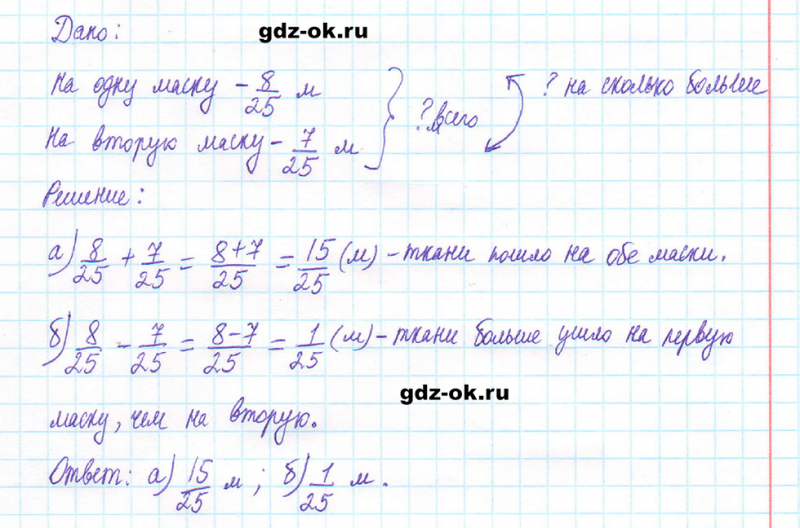 Дано: gdz-ok.ru
На одну маску - 8/25 м } ? м всего ? на сколько больше
На вторую маску - 7/25 м
Решение:
а) 8/25 + 7/25 = 8+7/25 = 15/25 (м) - ткани пошло на обе маски.
б) 8/25 - 7/25 = 8-7/25 = 1/25 (м) - ткани больше ушло на первую
gdz-ok.ru
маску, чем на вторую.
Ответ: а) 15/25 м ; б) 1/25 м .